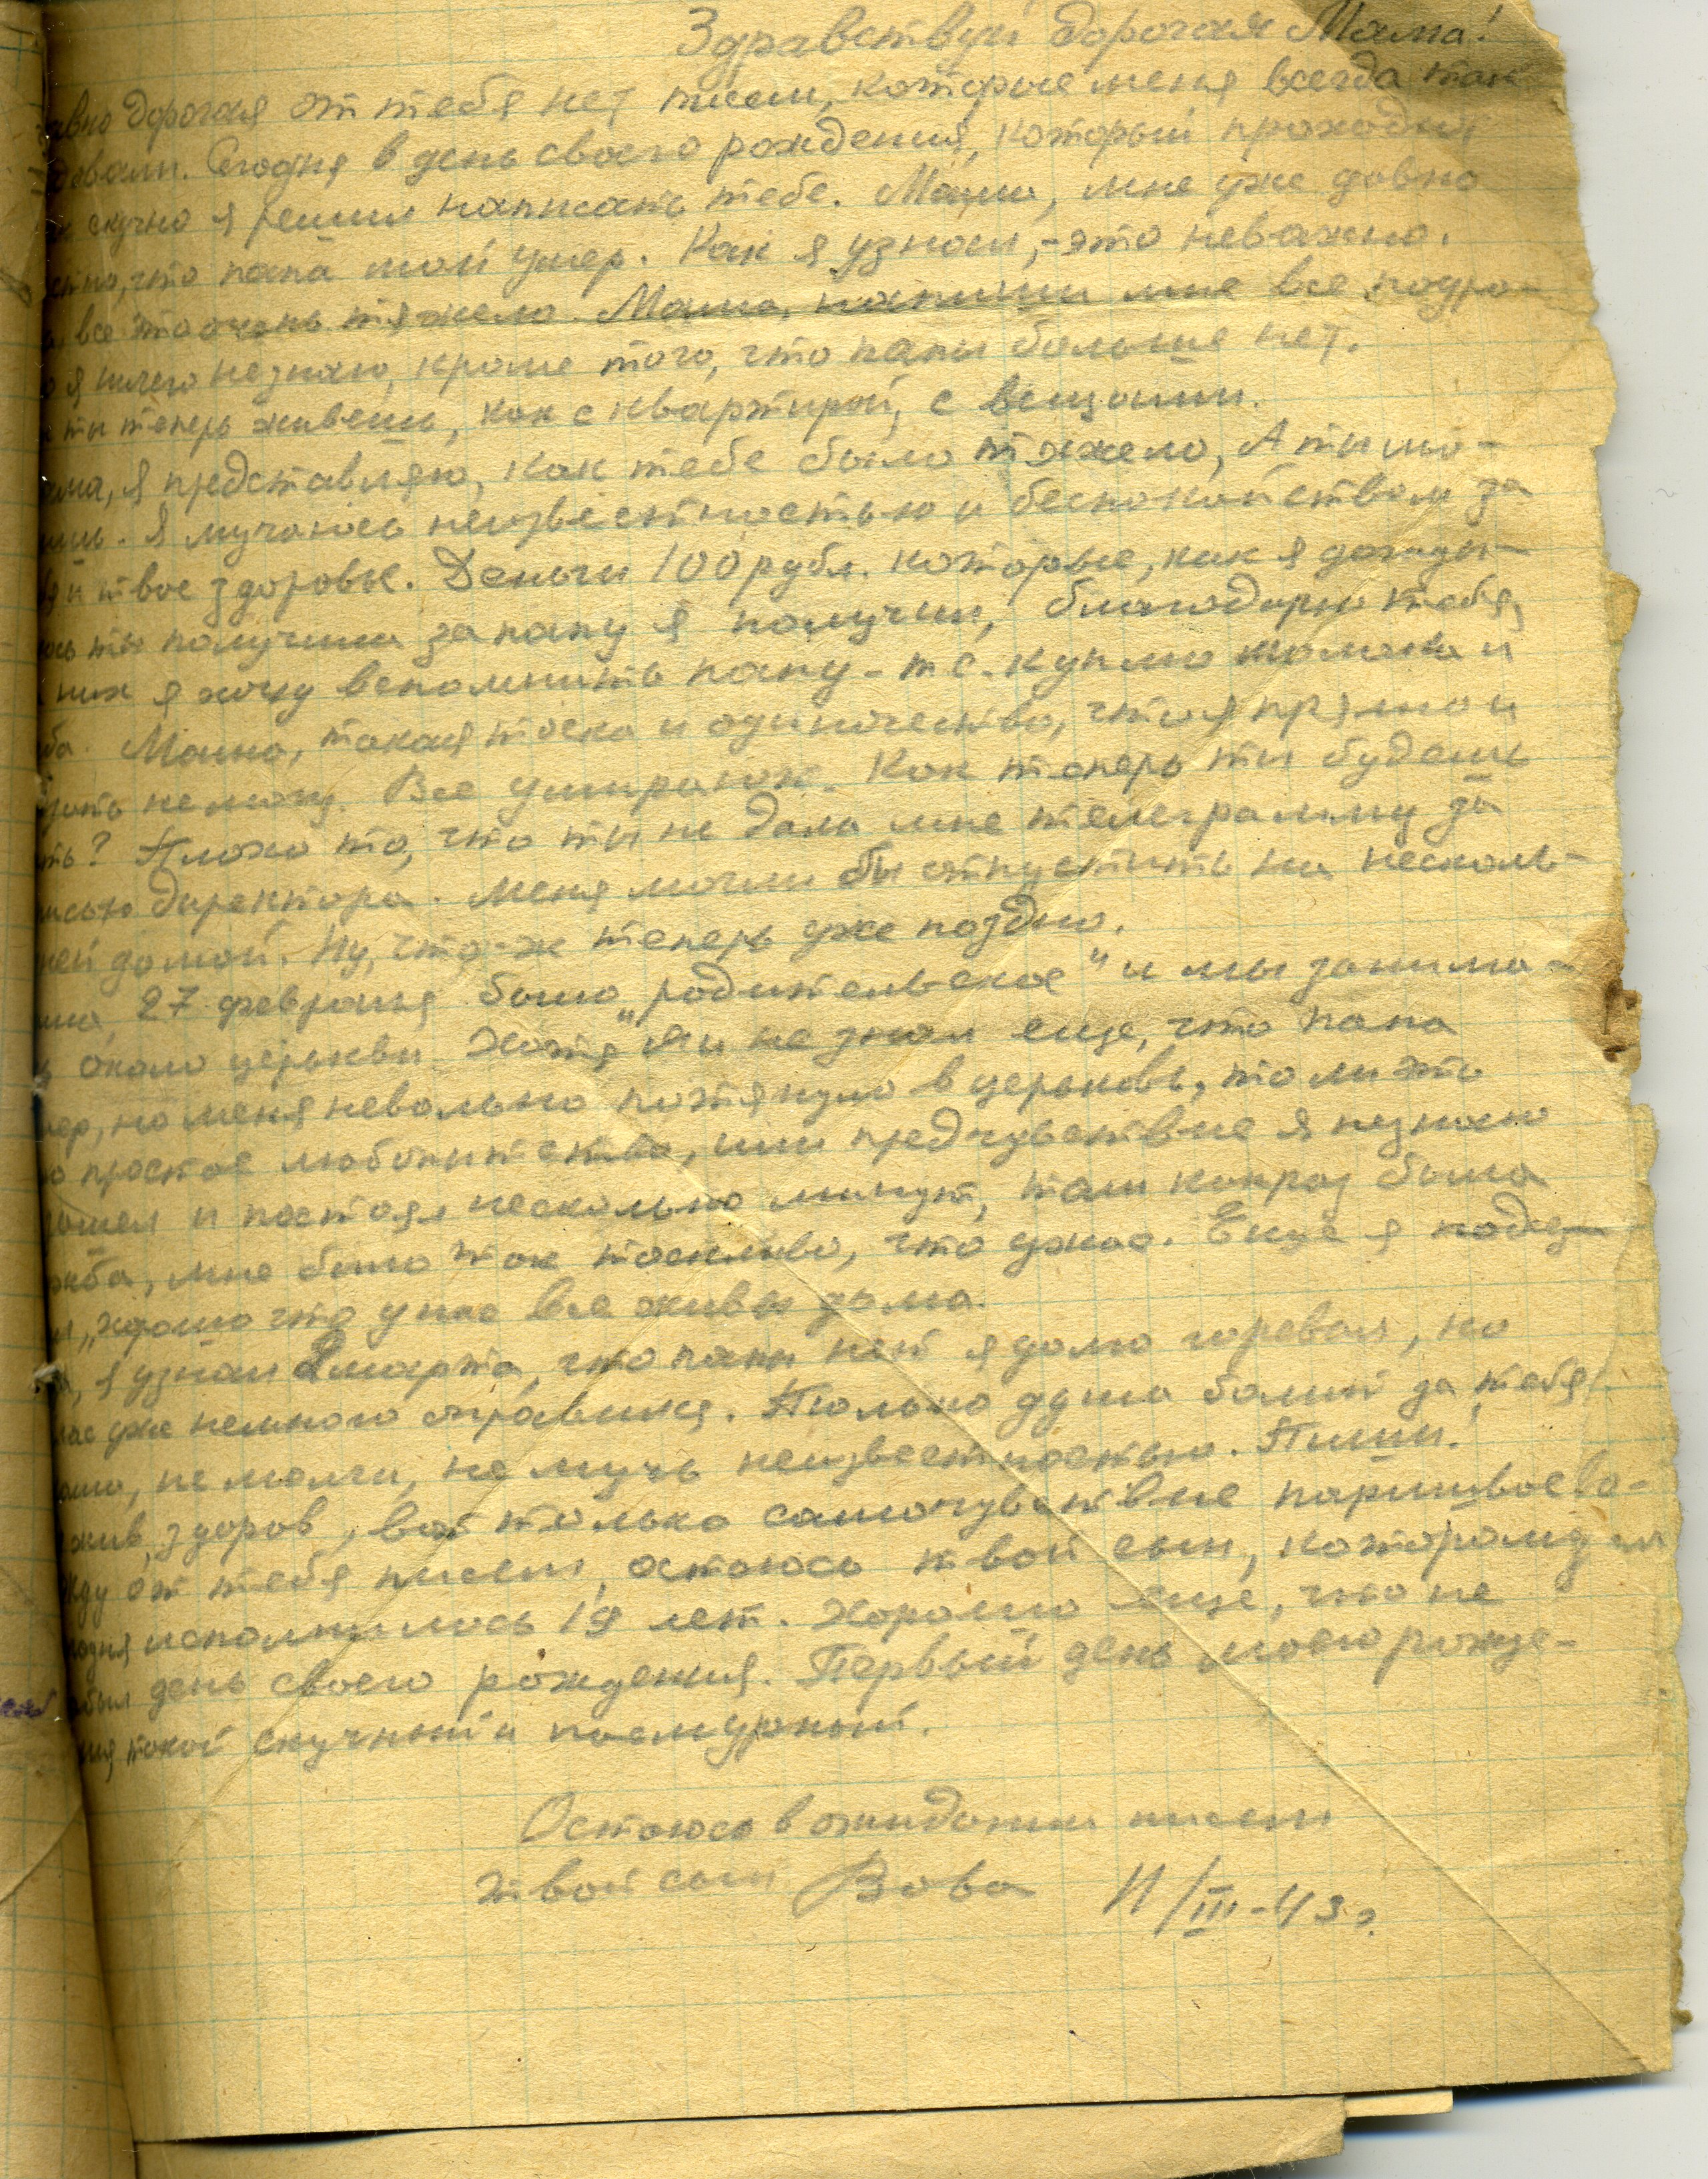 Здравствуй дорогая Мама!
авно дорогая от тебя нет писем, которые меня всегда так
довали. Сегодня в день своего рождения, который проходит
скучно я решил написать тебе. Мама, мне уже давно
стно, что папа мой умер. Как я узнал, - это неважно.
все это очень тяжело. Мама, напиши мне все подро-
о я ничего незнаю, кроме того, что папы больше нет.
ты теперь живешь, как с квартирой, с вещами.
ма, я представляю, как тебе было тяжело, А ты мо-
ишь. Я мучаюсь неизвестностью и беспокойством за
и твое здоровье. Деньги 100 рубл. которые, как я догады-
юсь ты получила за папу я получил, благодарю тебя,
них я хочу вспомнить папу - т е. куплю молока и
ба. Мама, такая тоска и одиночество, что я прямо и
немогу. Все умирают. Как теперь ты будешь
ть? Плохо то, что ты не дала мне телеграмму за
исью директора. Меня могли бы отпустить на несколь-
ней домой. Ну, что-ж теперь уже поздно.
ма, 27 февраля было „родительское" и мы занима-
ь около церькви. Хотя я и не знал еще, что папа
мер, но меня невольно потянуло в церьковь, то ли это
о простое любопытство, или предчувствие я незнаю
ошел и постоял несколько минут, там капраз была
жба, мне было так тоскливо, что ужас. Еще я поду-
л „хорошо что у нас все живы дома.
а, я узнал 2 марта, что папы нет я долго горевал, но
час уже немного оправился. Только душа болит за тебя
ама, не молчи, не мучь неизвестностью. Пиши!
жив, здоров, вот только самочувствие паршивое
жду от тебя писем, остаюсь твой сын, которому
годня исполнилось 19 лет. Хорошо еще, что не
абыл день своего рождения. Первый день моего рожде-
ия такой скучный и пасмурный.
Остаюсь в ожидании писем
твой сын Вова 11/III-43 г.